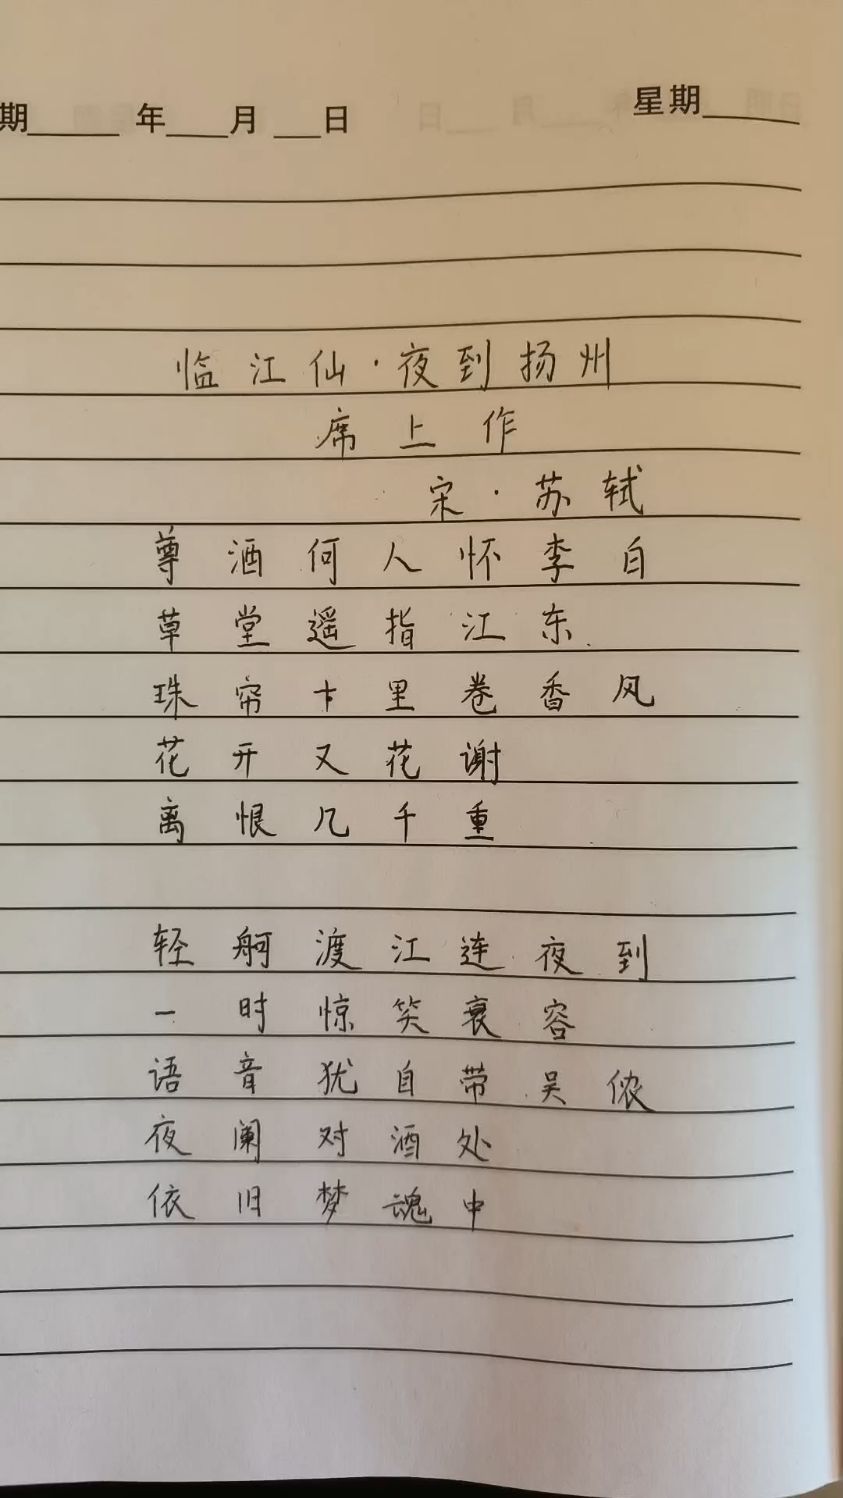 期______ 年____月 ___日 星期______
临江仙·夜到扬州
席上作
宋·苏轼
尊酒何人怀李白
草堂遥指江东
珠帘十里卷香风
花开又花谢
离恨几千重
轻舸渡江连夜到
一时惊笑衰容
语音犹自带吴侬
夜阑对酒处
依旧梦魂中